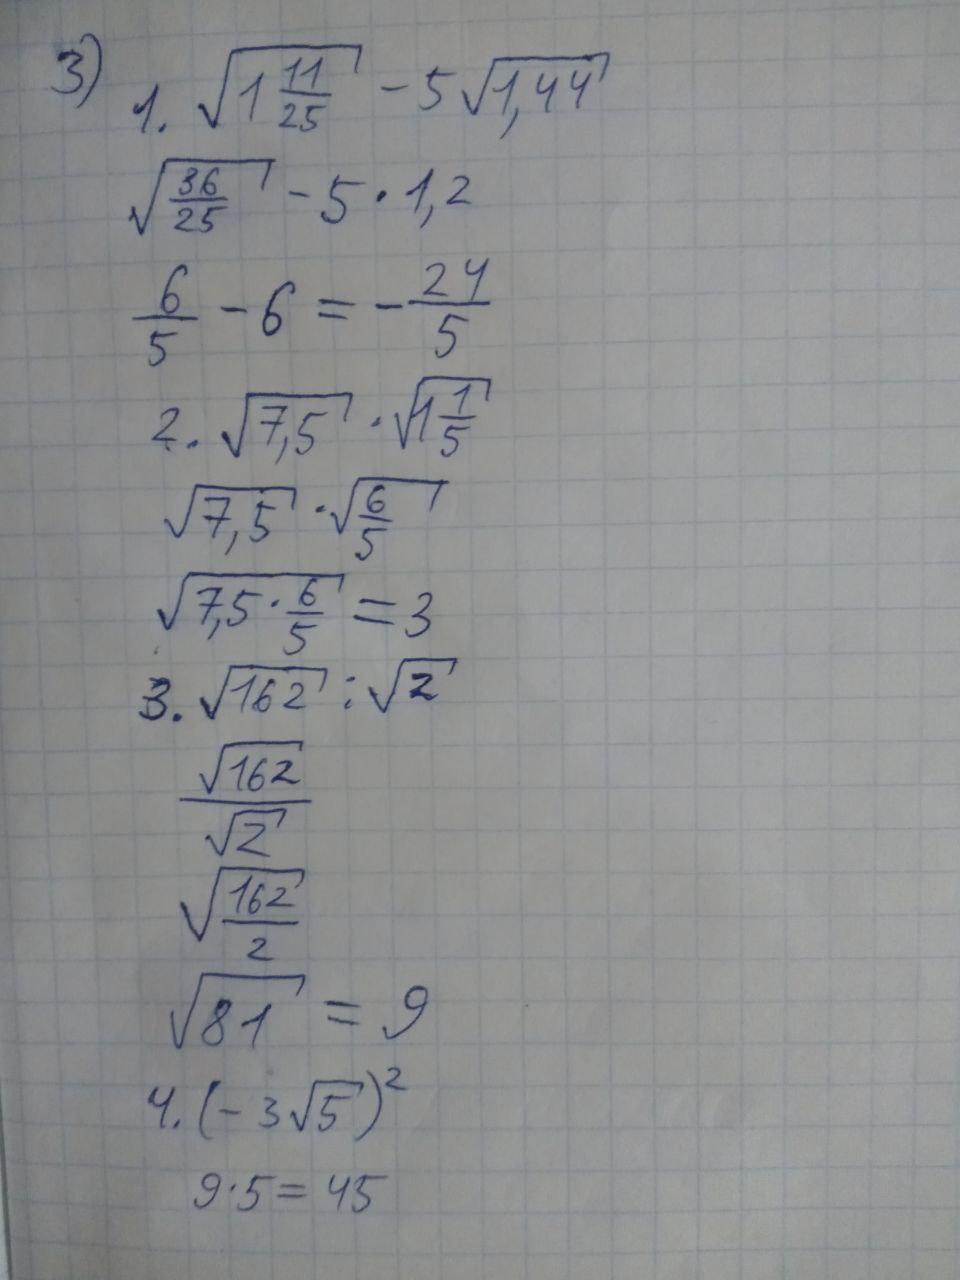 3) 1. √(1 11/25) - 5√1,44
√(36/25) - 5 · 1,2
6/5 - 6 = - 24/5
2. √7,5 · √(1 1/5)
√7,5 · √(6/5)
√(7,5 · 6/5) = 3
3. √162 : √2
√162/√2
√(162/2)
√81 = 9
4. (-3√5)²
9·5 = 45